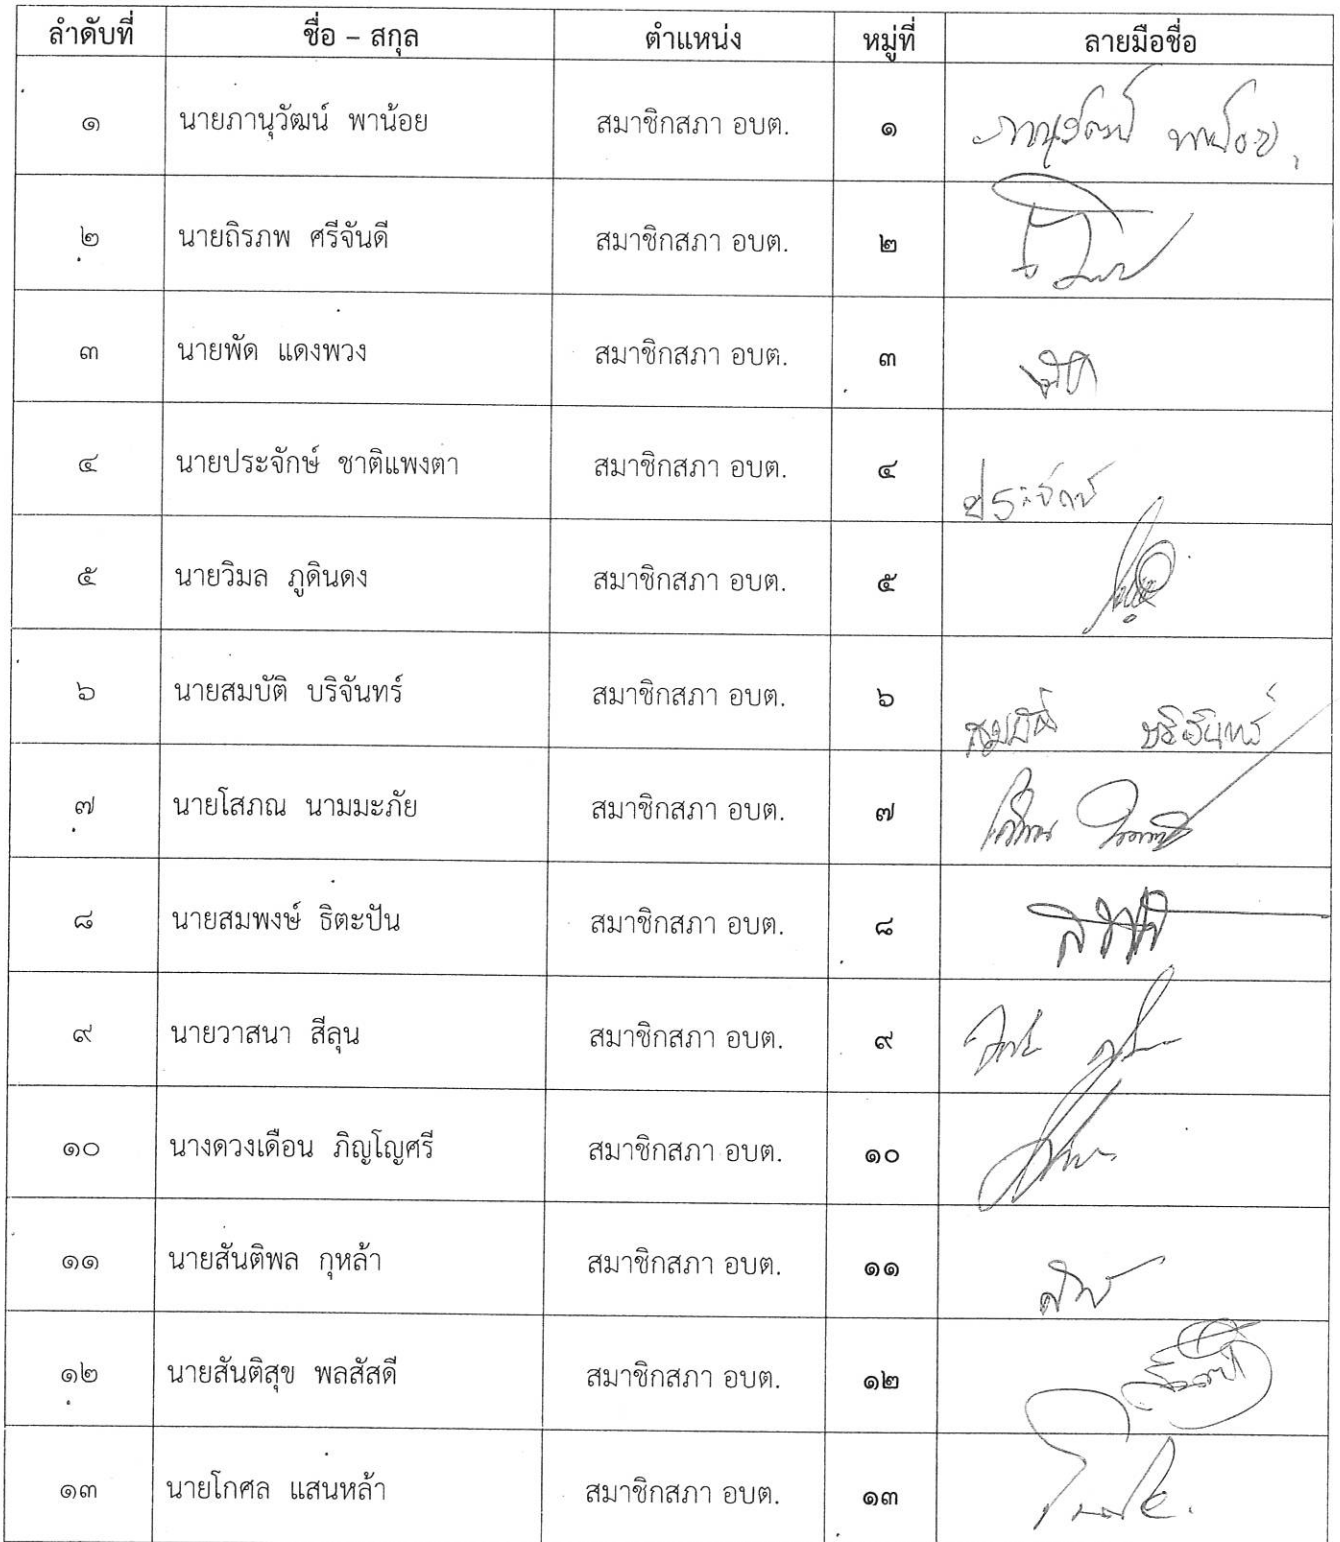 ลำดับที่ ชื่อ – สกุล ตำแหน่ง หมู่ที่ ลายมือชื่อ
๑ นายภานุวัฒน์ พาน้อย สมาชิกสภา อบต. ๑ ภานุวัฒน์ พาน้อย
๒ นายถิรภพ ศรีจันดี สมาชิกสภา อบต. ๒
๓ นายพัด แดงพวง สมาชิกสภา อบต. ๓
๔ นายประจักษ์ ชาติแพงตา สมาชิกสภา อบต. ๔ ประจักษ์
๕ นายวิมล ภูดินดง สมาชิกสภา อบต. ๕
๖ นายสมบัติ บริจันทร์ สมาชิกสภา อบต. ๖ สมบัติ บริจันทร์
๗ นายโสภณ นามมะภัย สมาชิกสภา อบต. ๗
๘ นายสมพงษ์ ธิตะปัน สมาชิกสภา อบต. ๘
๙ นายวาสนา สีลุน สมาชิกสภา อบต. ๙
๑๐ นางดวงเดือน ภิญโญศรี สมาชิกสภา อบต. ๑๐
๑๑ นายสันติพล กุหล้า สมาชิกสภา อบต. ๑๑
๑๒ นายสันติสุข พลสัสดี สมาชิกสภา อบต. ๑๒
๑๓ นายโกศล แสนหล้า สมาชิกสภา อบต. ๑๓